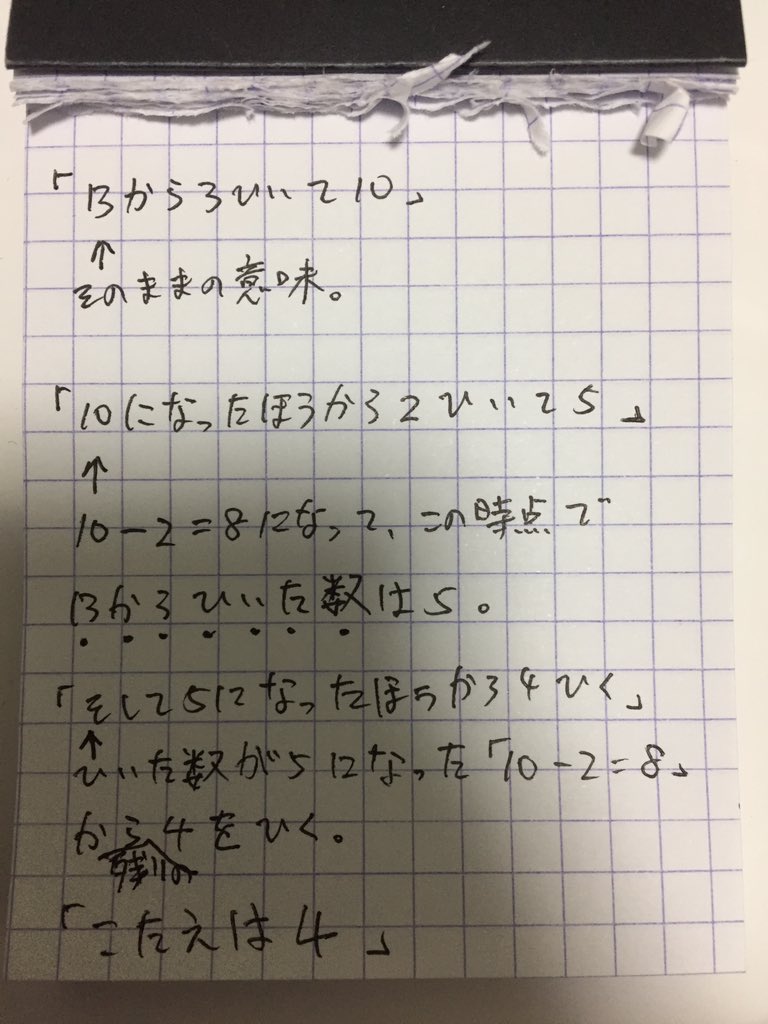 「13から3ひいて10」
↑
そのままの意味。
「10になったほうから2ひいて5」
↑
10-2=8になって、この時点で
13からひいた数は5。
「そして5になったほうから4ひく」
↑
ひいた数が5になった「10-2=8」
から残りの4をひく。
「こたえは4」